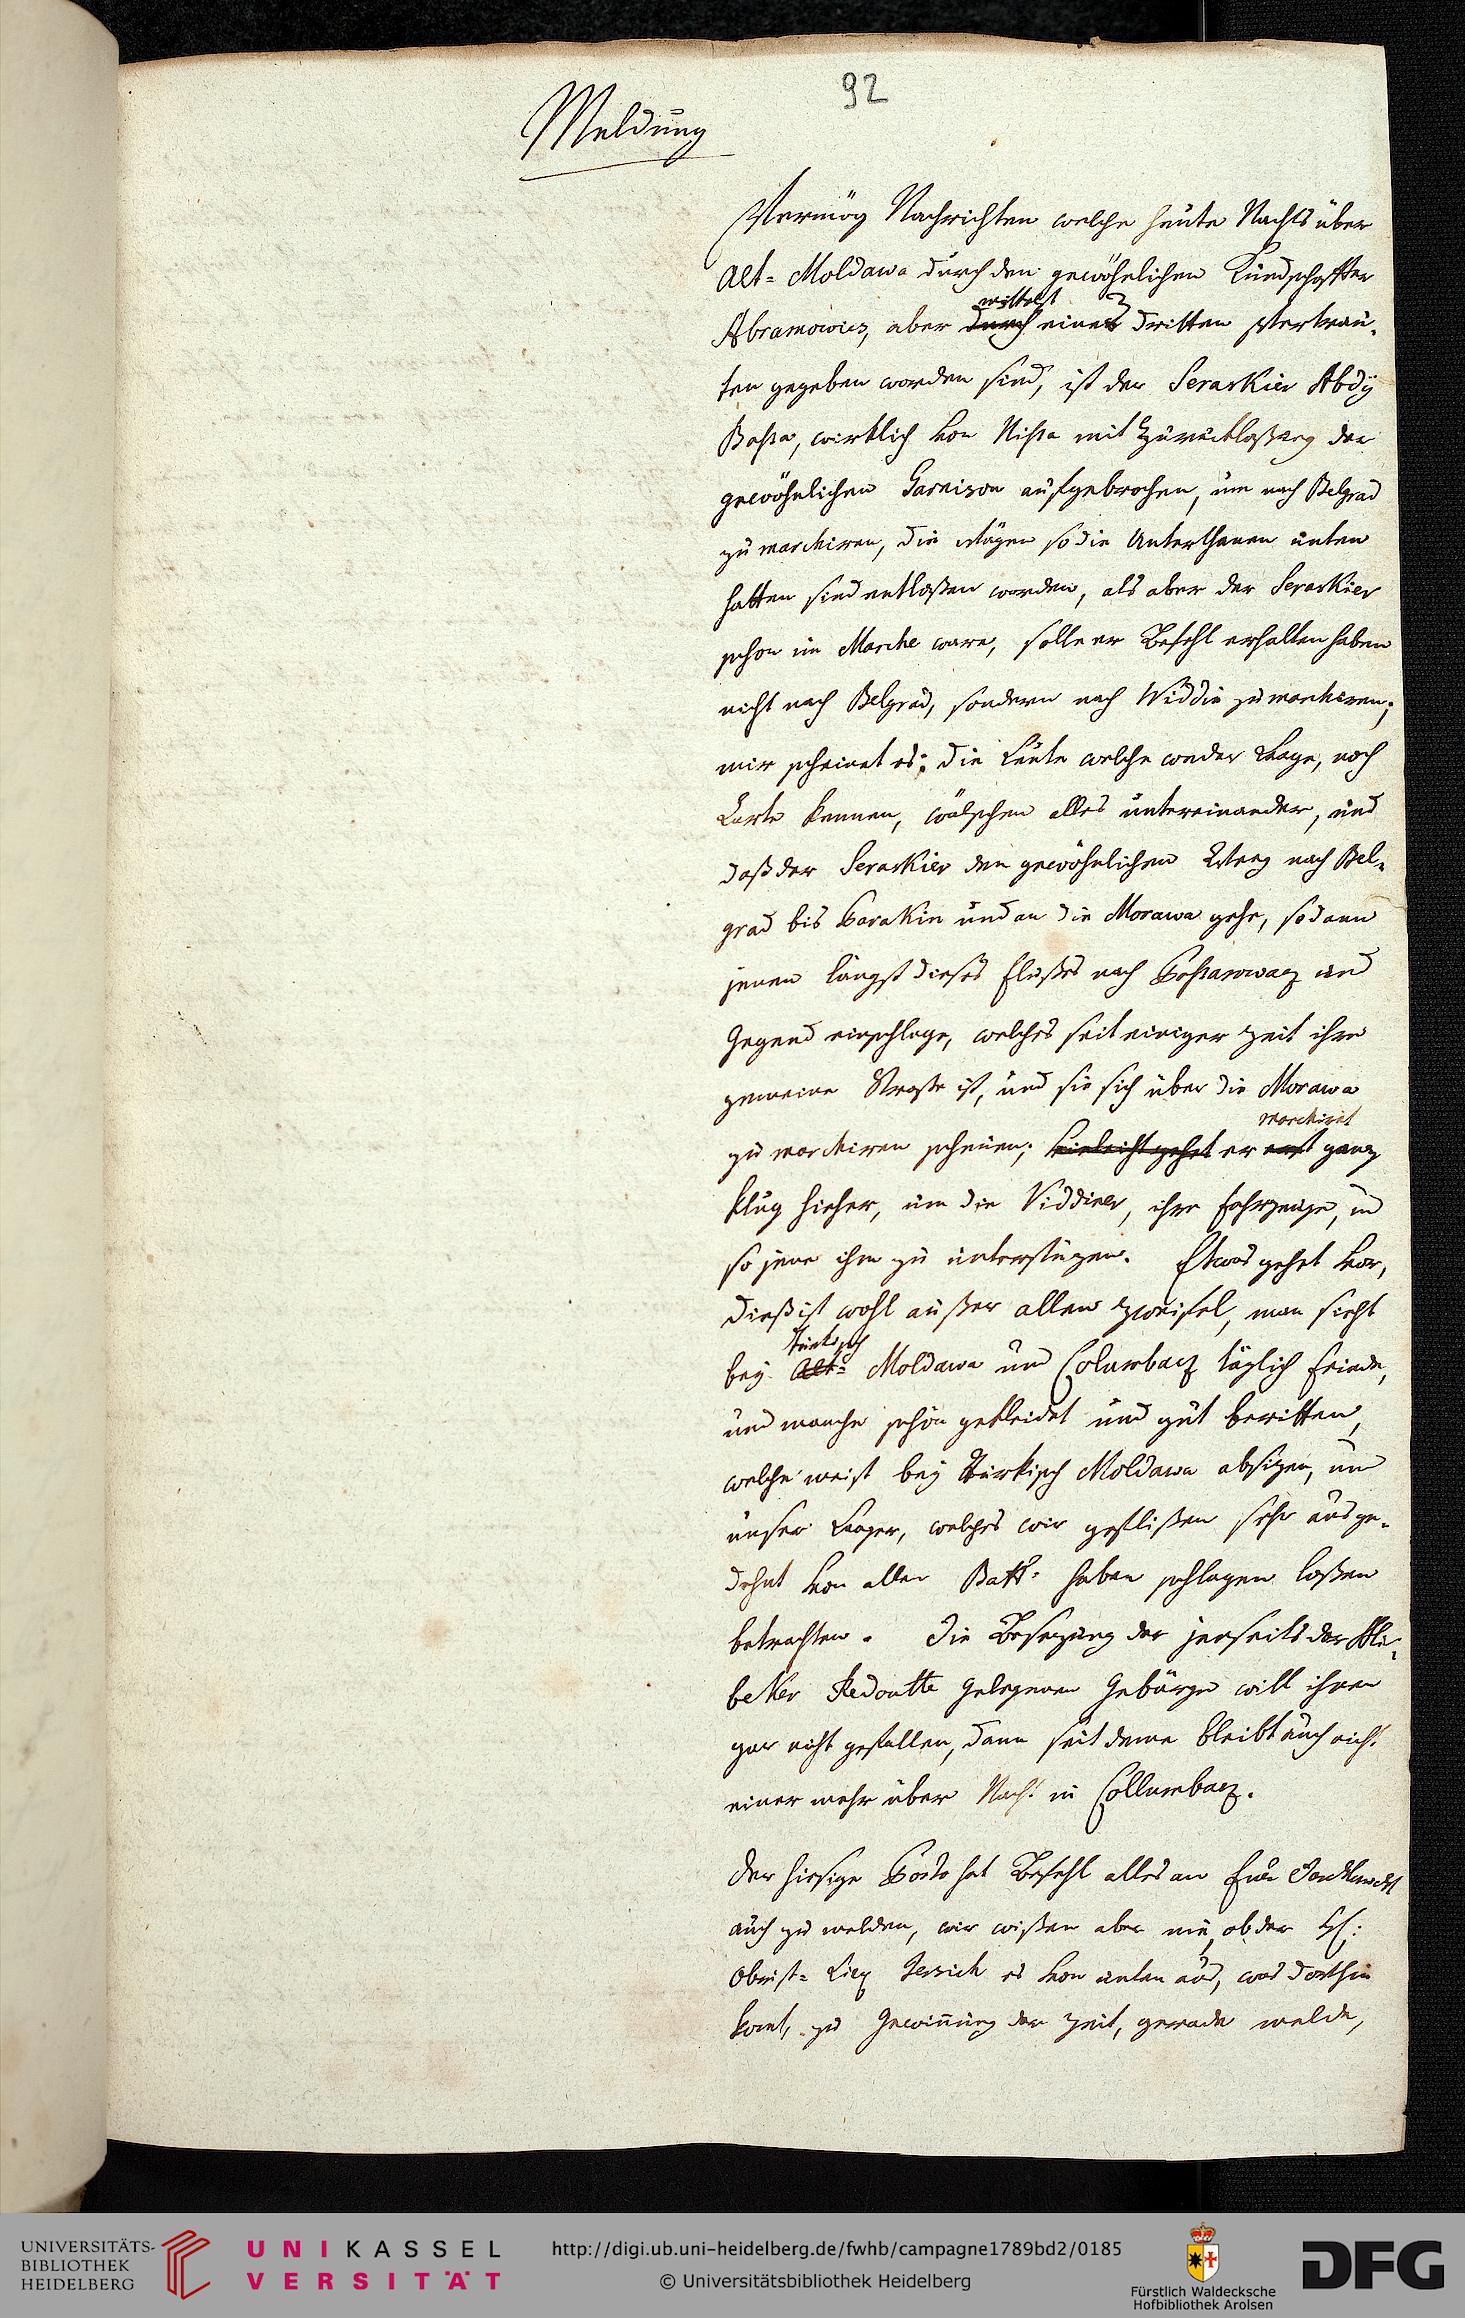 92
Meldung
Vermög Nachrichten welche heute Nachts über
Alt- Moldawa durch den gewöhnlichen Kundschaffter
mittelst
Abramowics, aber durch eines dritten Vertrau-
ten gegeben worden sind, ist der Seraskier Abdÿ
Bassa, wirklich von Nissa mit Zurücklassung der
gewöhnlichen Garnison aufgebrochen, um nach Belgrad
zu marchiren, die Wägen so die Unterthanen unten
hatten sind entlassen worden, als aber der Seraskier
schon im Marche ware, solle er Befehl erhalten haben
nicht nach Belgrad, sondern nach Widdin zu marchiren;
mir scheinet es: die Leute welche weder Laage, noch
Karte kennen, wälschen alles untereinander, und
daß der Seraskier den gewöhnlichen Weeg nach Bel-
grad bis Parakin und an die Morawa gehe, sodann
jenen längst dieses Flusses nach Possarowacz und
Gegend einschlage, welches seit einiger Zeit ihre
gemeine Strasse ist, und sie sich über die Morawa
marchiret
zu marchiren scheuen; vieleicht gehet er erst ganz
klug hieher, um die Viddiner, ihre Fahrzeuge, und
so jene ihn zu unterstüzen. Etwas gehet vor,
dieß ist wohl ausser allem Zweifel, man sieht
Türkisch
bey Alt- Moldawa und Columbacz täglich Feinde,
und manche schön gekleidet und gut beritten,
welche meist bey Türkisch Moldawa absizen, um
unser Laager, welches wir geflissen sehr ausge-
dehnt von allen Batt: haben schlagen lassen
betrachten. Die Besezung der jenseits der Ali-
beker Redoutte gelegenen Gebürge will ihnen
gar nicht gefallen, dann seit deme bleibt auch nicht
einer mehr über Nacht in Collumbacz.
Der hiesige Posto hat Befehl alles an Euer
auch zu melden, wir wissen aber nie, ob der H:
Obrist- Lieut. es von unten aus, was dorthin
komt, zu Gewinnung der Zeit, gerade melde,
UNIVERSITÄTS-
BIBLIOTHEK
HEIDELBERG
UNIKASSEL
VERSITÄT
http://digi.ub.uni-heidelberg.de/fwhb/campagne1789bd2/0185
© Universitätsbibliothek Heidelberg
Fürstlich Waldecksche
Hofbibliothek Arolsen
DFG